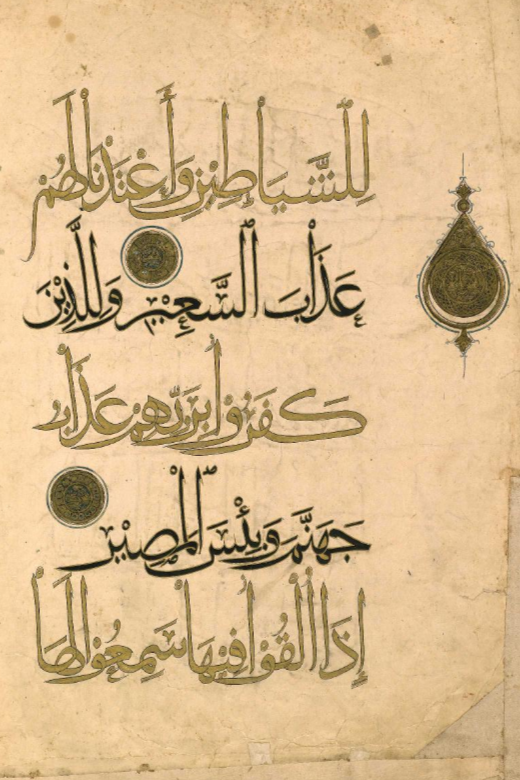 لِلشَّيَاطِيْنِ وَأَعْتَدْنَا لَهُمْ
عَذَابَ السَّعِيْرِ وَلِلَّذِيْنَ
كَفَرُوْا بِرَبِّهِمْ عَذَابُ
جَهَنَّمَ وَبِئْسَ الْمَصِيْرُ
إِذَا أُلْقُوْا فِيْهَا سَمِعُوْا لَهَا